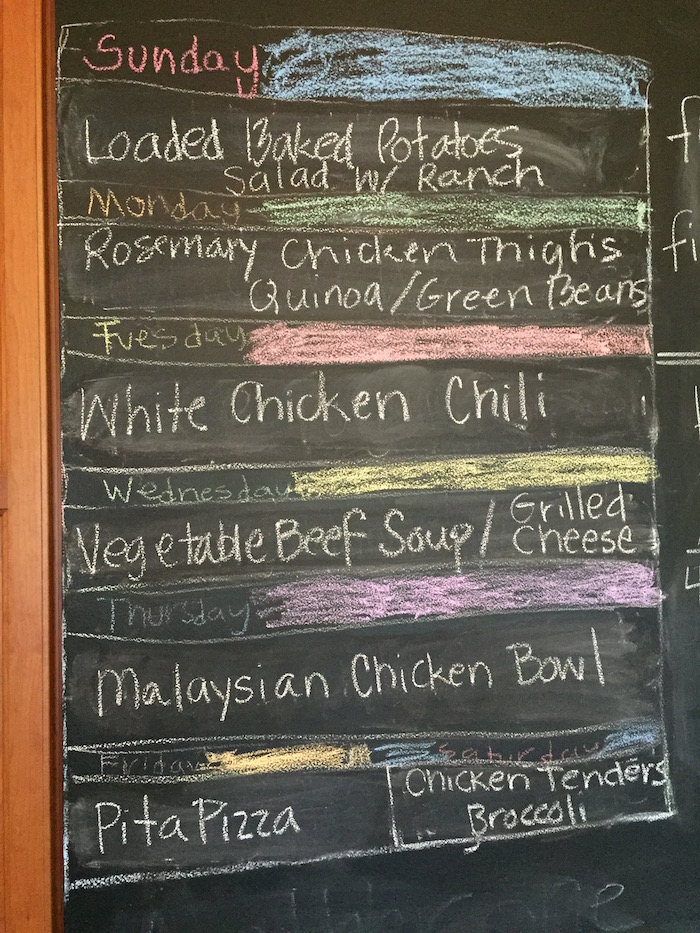 Sunday
Loaded Baked Potatoes
Salad w/ Ranch
Monday
Rosemary Chicken Thighs
Quinoa/Green Beans
Tuesday
White Chicken Chili
Wednesday
Vegetable Beef Soup/ Grilled
Cheese
Thursday
Malaysian Chicken Bowl
Friday Saturday
Pita Pizza
Chicken Tenders
Broccoli